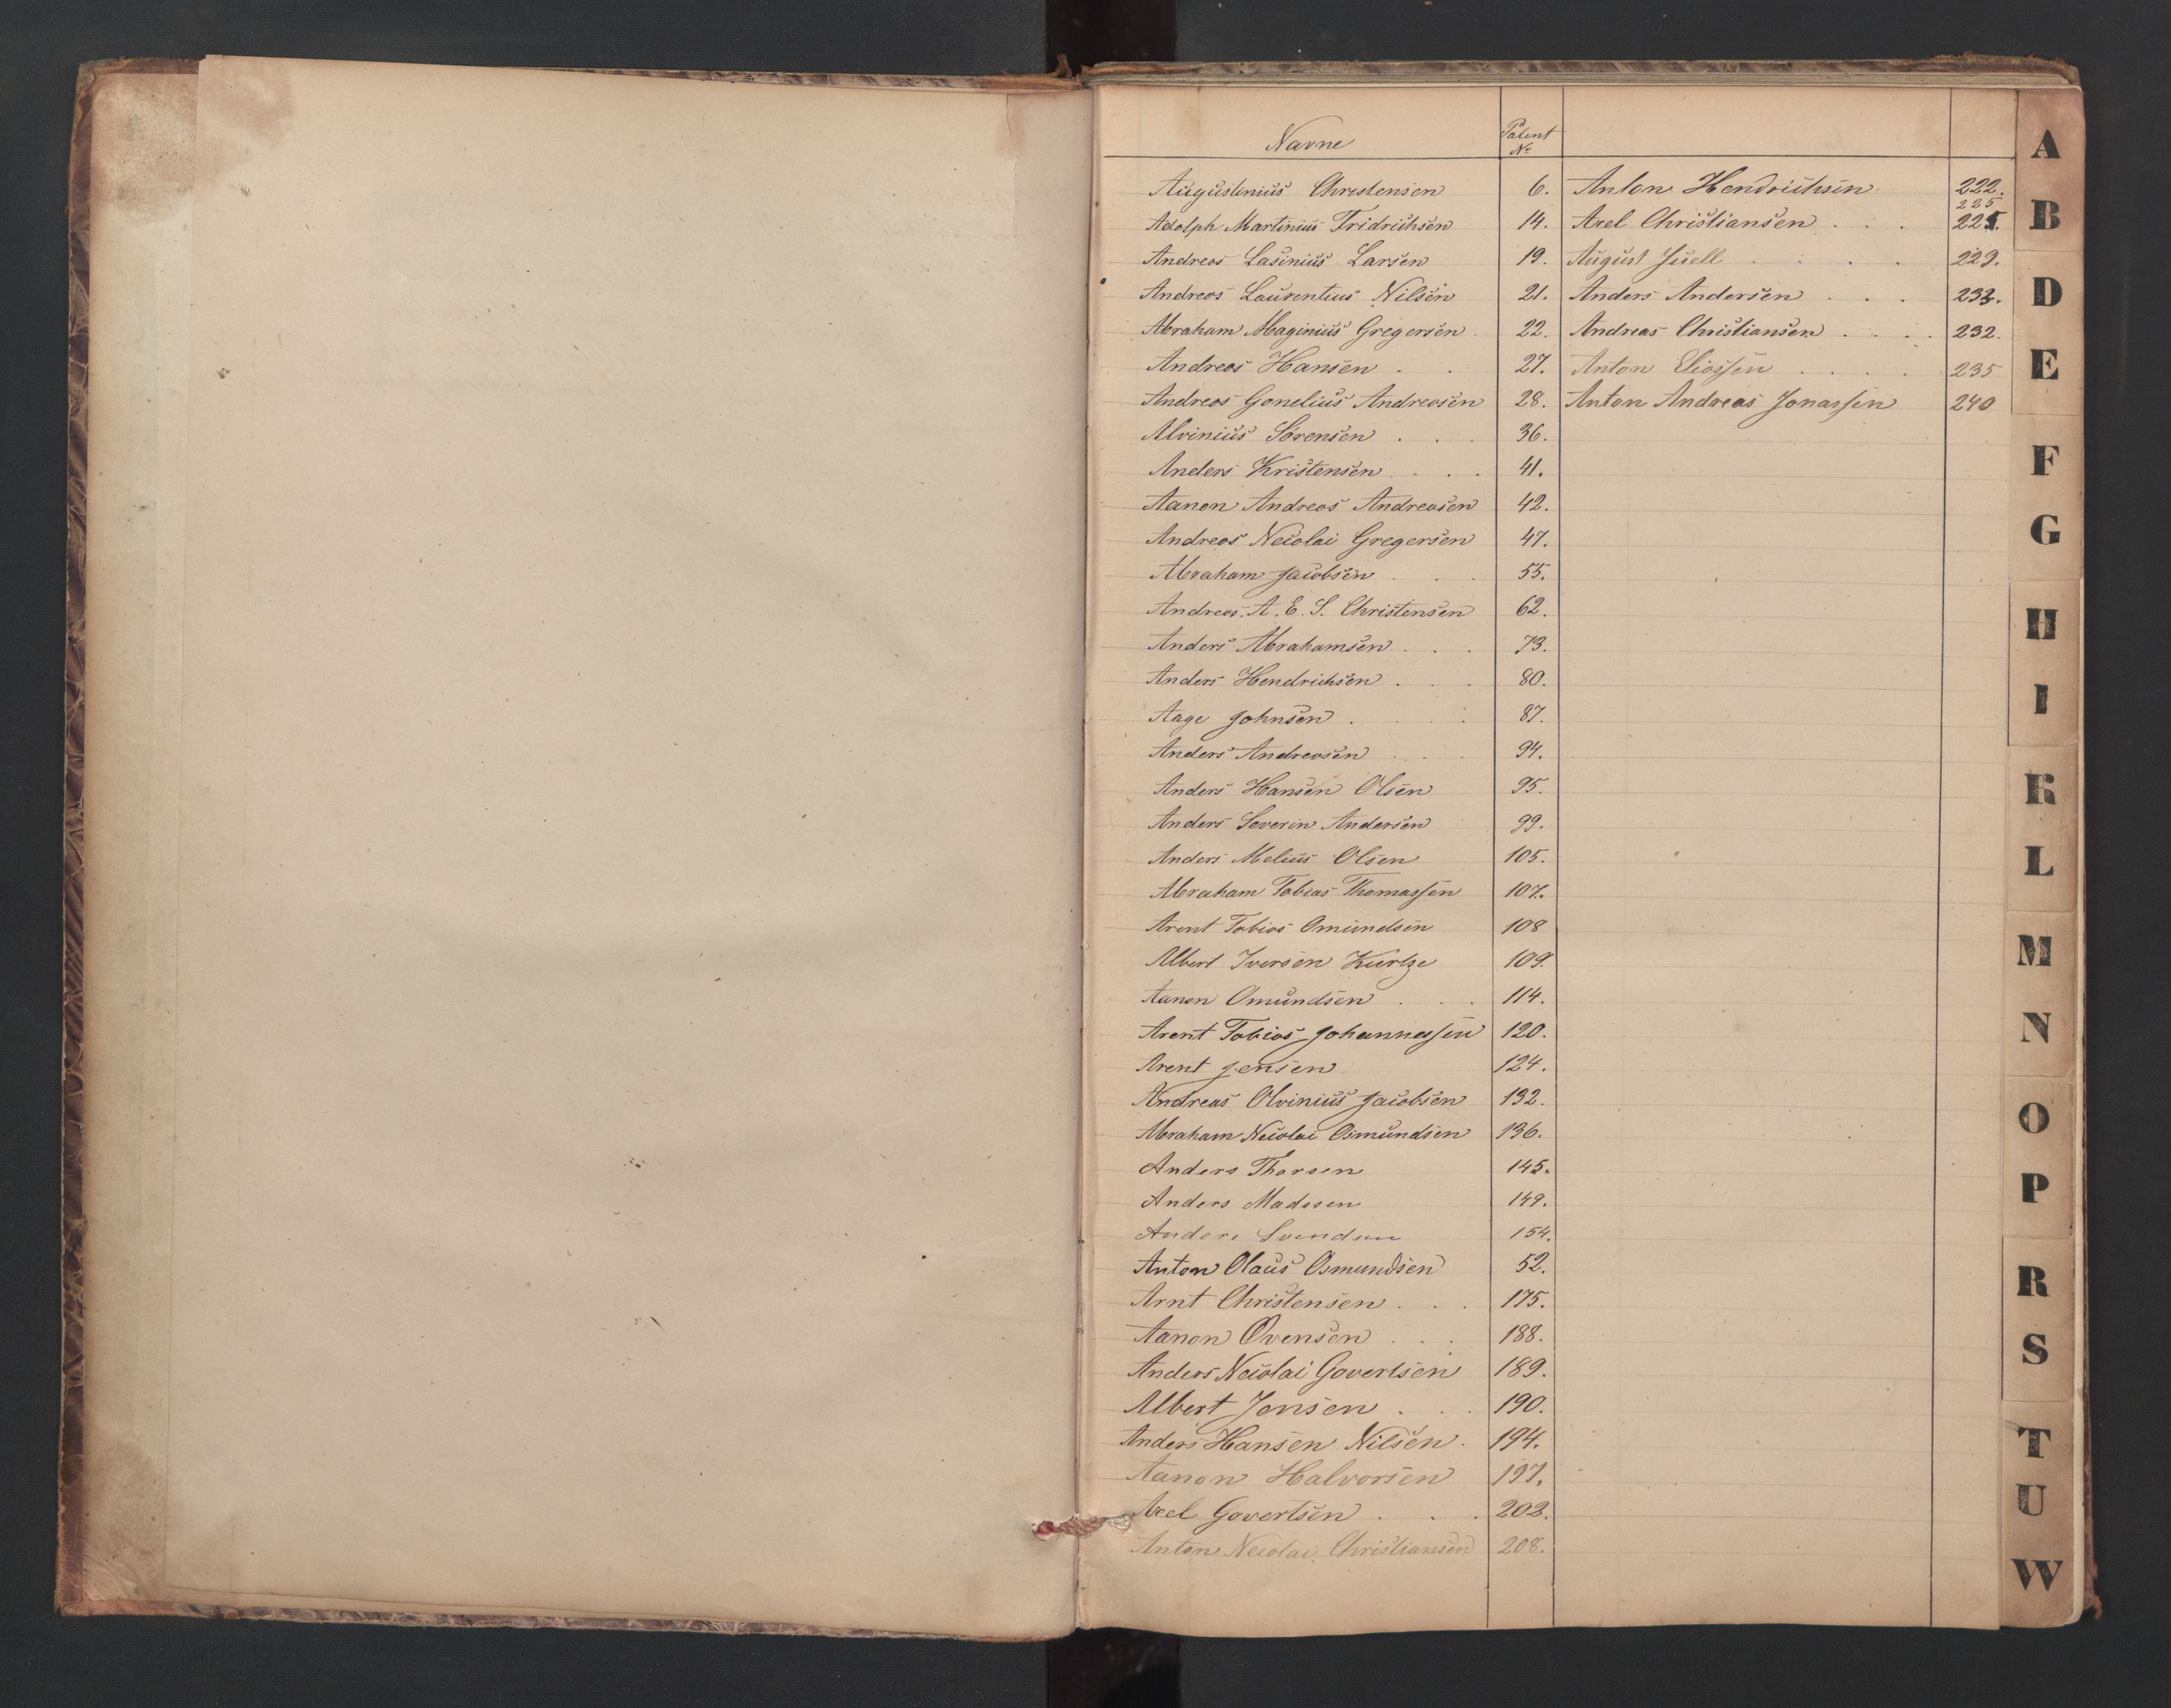 Navne Patent No
Augustinius Christensen 6.
Adolph Martinius Fridrichsen 14.
Andreas Lasinius Larsen 19.
Andreas Laurentius Nilsen 21.
Abraham Maginius Gregersen . 22.
Andreas Hansen . . 27.
Andreas Gonelius Andreasen 28.
Alvinius Sørensen . . . 36.
Anders Kristensen . . . 41.
Aanon Andreas Andreasen 42.
Andreas Nicolai Gregersen 47.
Abraham Jacobsen . . . 55.
Andreas. A. E. S. Christensen 62.
Anders Abrahamsen . . . 73.
Anders Hendrichsen . . . 80.
Aage Johnsen . . . . 87.
Anders Andreasen . . . 94.
Anders Hansen Olsen 95.
Anders Severin Andersen 99.
Anders Melius Olsen 105.
Abraham Tobias Thomassen 107.
Arent Tobias Omundsen 108
Albert Iversen Kurtze 109.
Aanon Omundsen . . . 114.
Arent Tobias Johannessen 120.
Arent Jensen 124.
Andreas Olvinius Jacobsen 132.
Abraham Nicolai Osmundsen 136.
Anders Thorsen 145.
Anders Madssen 149.
Anders Svendsen 154.
Anton Olaus Osmundsen 52.
Arnt Christensen . . . 175.
Aanon Ovensen . . . 188.
Anders Nicolai Govertsen 189.
Albert Jensen . . . 190.
Anders Hansen Nilsen . 194.
Aanon Halvorsen 197.
Axel Govertsen . . . 203.
Anton Nicolai Christiansen 208.
Anton Hendrichsen 222.
225
Axel Christiansen . . . 225.
August Juell . . . . 229.
Anders Andersen . . . 233.
Andreas Christiansen . . . . 232.
Anton Eliassen . . . . 235
Anton Andreas Jonassen 240
A
B
D
E
F
G
H
I
K
L
M
N
O
P
R
S
T
U
W